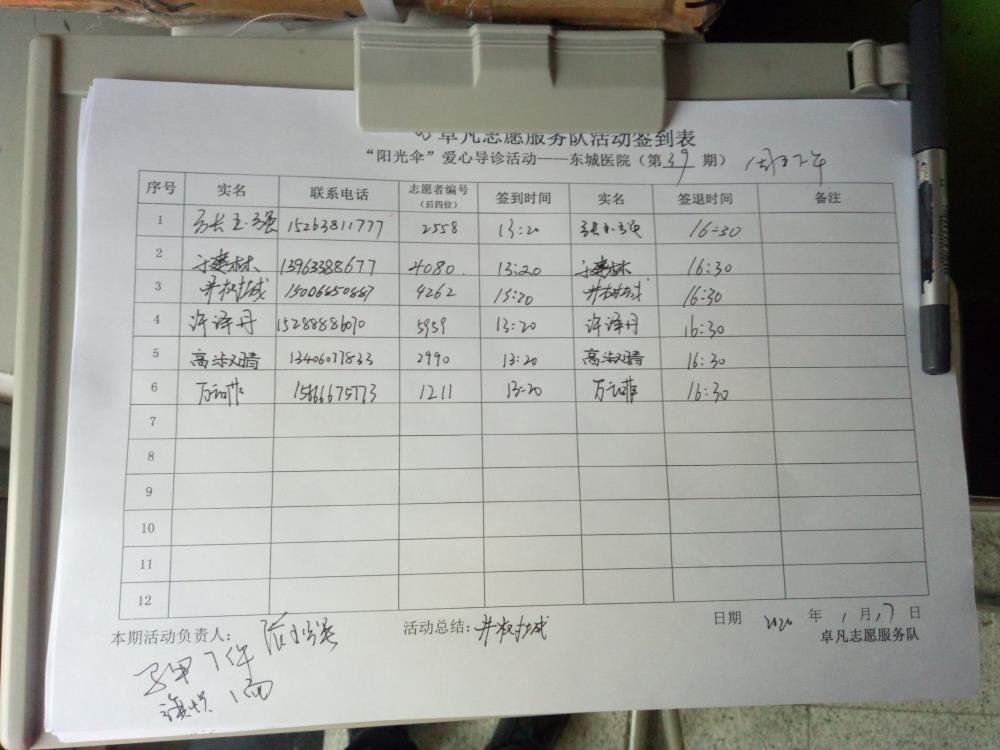 卓凡志愿服务队活动签到表
“阳光伞”爱心导诊活动——东城医院（第39期） 周五下午
序号 实名 联系电话 志愿者编号（后四位） 签到时间 实名 签退时间 备注
1 15263811777 2558 13:20 16:30
2 于建林 13963388677 4080 13:20 于建林 16:30
3 15006650887 4262 13:20 16:30
4 许泽丹 15288886070 5959 13:20 许泽丹 16:30
5 高淑晴 13406077833 2990 13:20 高淑晴 16:30
6 15666675773 1211 13:20 16:30
7
8
9
10
11
12
本期活动负责人： 活动总结： 日期 2020 年 1 月 17 日
卓凡志愿服务队